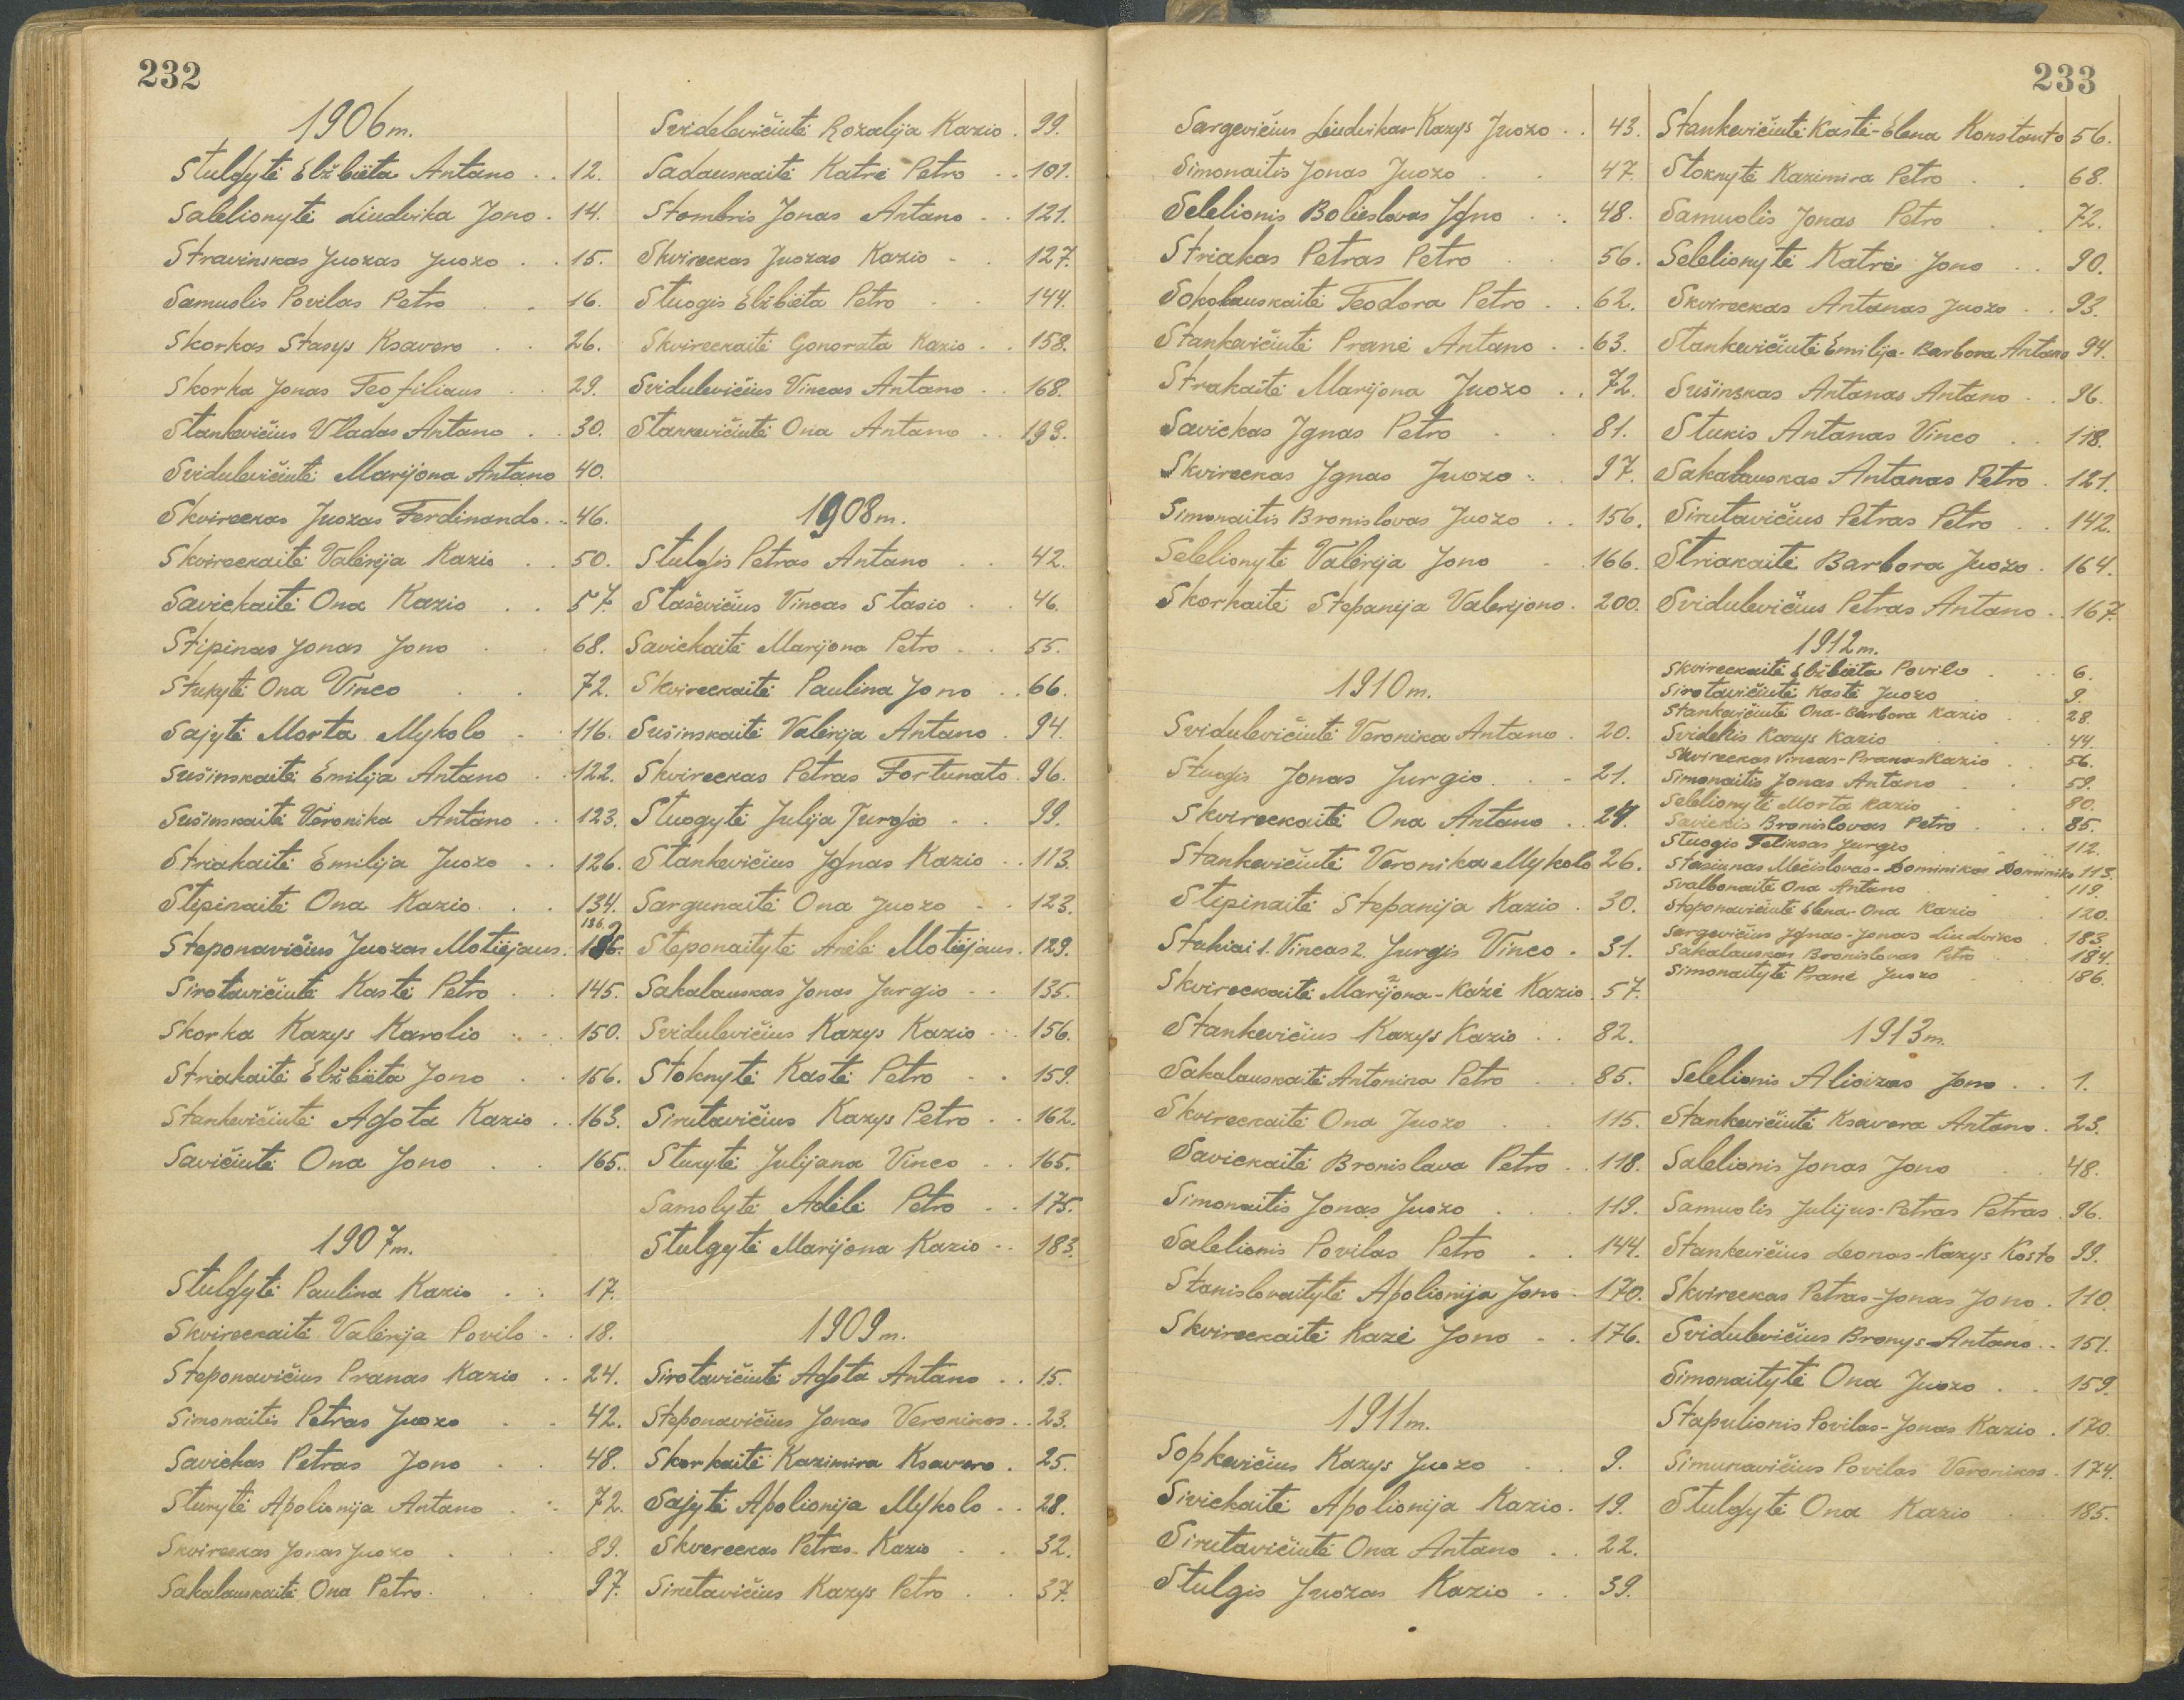 232
1906m.
Stulgytė Elžbieta Antano . . 12.
Salelionytė Liudvika Jono . 14.
Stravinskas Juozas Juozo . . 15.
Samuolis Povilas Petro . . 16.
Skorkas Stasys Ksavero . . 26.
Skorka Jonas Teofiliaus . . 29.
Stankevičius Vladas Antano . . 30.
Svidulevičiutė Marijona Antano 40.
Skvireckas Juozas Ferdinando . . 46.
Skvireckaitė Valerija Kazio . . 50.
Savickaitė Ona Kazio . . 57.
Stipinas Jonas Jono . . 68.
Stukytė Ona Vinco . . 72.
Sajytė Morta Mykolo . . 116.
Sušinskaitė Emilija Antano . . 122.
Sušinskaitė Veronika Antano . . 123.
Striakaitė Emilija Juozo . . 126.
Stipinaitė Ona Kazio . . 134.
136.
Steponavičius Juozas Motiejaus .
Sirotavičiutė Kastė Petro . . 145.
Skorka Kazys Karolio . . 150.
Striakaitė Elžbieta Jono . . 156.
Stankevičiutė Agota Kazio . . 163.
Savičiutė Ona Jono . . 165.
1907m.
Stulgytė Paulina Kazio . . 17.
Skvireckaitė Valerija Povilo . . 18.
Steponavičius Pranas Kazio . . 24.
Simonaitis Petras Juozo . . 42.
Savickas Petras Jono . . 48.
Stukytė Apolionija Antano . . 72.
Skvireckas Jonas Juozo . . 89.
Sakalauskaitė Ona Petro . . 97.
Svidelevičiutė Rozalija Kazio . 99.
Sadauskaitė Katrė Petro . . 101.
Stombris Jonas Antano . . 121.
Skvireckas Juozas Kazio . . 127.
Stuogis Elžbieta Petro . . 144.
Skvireckaitė Gonorata Kazio . . 158.
Svidulevičius Vincas Antano . . 168.
Stankevičiutė Ona Antano . . 193.
1908m.
Stulgis Petras Antano . . 42.
Staševičius Vincas Stasio . . 46.
Savickaitė Marijona Petro . . 55.
Skvireckaitė Paulina Jono . . 66.
Sušinskaitė Valerija Antano . 94.
Skvireckas Petras Fortunato . 96.
Stuogytė Julija Jurgio . . 99.
Stankevičius Ignas Kazio . . 113.
Sargunaitė Ona Juozo . . 123.
Steponaitytė Anelė Motiejaus . 129.
Sakalauskas Jonas Jurgio . . 135.
Svidulevičius Kazys Kazio . . 156.
Stoknytė Kastė Petro . . 159.
Sirutavičius Kazys Petro . . 162.
Stukytė Julijana Vinco . . 165.
Samolytė Adelė Petro . . 175.
Stulgytė Marijona Kazio . . 183.
1909m.
Sirotavičiutė Agota Antano . . 15.
Steponavičius Jonas Veronikos . . 23.
Skorkaitė Kazimira Ksavero . 25.
Sajytė Apolionija Mykolo . . 28.
Skvereckas Petras Kazio . . 32.
Sirutavičius Kazys Petro . . 37.
233
Sargevičius Liudvikas-Kazys Juozo . . 43.
Simonaitis Jonas Juozo . . 47.
Selelionis Bolieslovas Igno . . 48.
Striakas Petras Petro . . 56.
Sokolauskaitė Teodora Petro . . 62.
Stankevičiutė Pranė Antano . . 63.
Strakaitė Marijona Juozo . . 72.
Savickas Ignas Petro . . 81.
Skvireckas Ignas Juozo . . 97.
Simonaitis Bronislovas Juozo . . 156.
Selelionytė Valerija Jono . . 166.
Skorkaitė Stepanija Valerijono . 200.
1910m.
Svidulevičiutė Veronika Antano . 20.
Stuogis Jonas Jurgio . . 21.
Skvireckaitė Ona Antano . . 24.
Stankevičiutė Veronika Mykolo 26.
Stipinaitė Stepanija Kazio . 30.
Stukiai 1. Vincas 2. Jurgis Vinco . 31.
Skvireckaitė Marijona-Kazė Kazio . 57.
Stankevičius Kazys Kazio . . 82.
Sakalauskaitė Antonina Petro . . 85.
Skvireckaitė Ona Juozo . . 115.
Savickaitė Bronislava Petro . . 118.
Simonaitis Jonas Juozo . . 119.
Salelionis Povilas Petro . . 144.
Stanislovaitytė Apolionija Jono . 170.
Skvireckaitė Kazė Jono . . 176.
1911m.
Sopkevičius Kazys Juozo . . 9.
Sivickaitė Apolionija Kazio . 19.
Sirutavičiutė Ona Antano . . 22.
Stulgis Juozas Kazio . . 39.
Stankevičiutė Kastė-Elena Konstanto 56.
Stoknytė Kazimira Petro . . 68.
Samuolis Jonas Petro . . 72.
Selelionytė Katrė Jono . . 90.
Skvireckas Antanas Juozo . . 93.
Stankevičiutė Emilija-Barbora Antano 94.
Sušinskas Antanas Antano . . 96.
Stukis Antanas Vinco . . 118.
Sakalauskas Antanas Petro . 121.
Sirutavičius Petras Petro . . 142.
Striakaitė Barbora Juozo . 164.
Svidulevičius Petras Antano . . 167.
1912m.
Skvireckaitė Elžbieta Povilo . . 6.
Sirotavičiutė Kastė Juozo . 9.
Stankevičiutė Ona-Barbora Kazio . 28.
Svidelis Kazys Kazio . . 44.
Skvireckas Vincas-Pranas Kazio . . 56.
Simonaitis Jonas Antano . . 59.
Selelionytė Morta Kazio . . 80.
Savickis Bronislovas Petro . . 85.
Stuogis Feliksas Jurgio . . 112.
Stasiunas Mečislovas-Dominikas Dominiko 113.
Svalbonaitė Ona Antano . . 119.
Steponavičiutė Elena-Ona Kazio . 120.
Sargevičius Ignas-Jonas Liudviko . 183.
Sakalauskas Bronislovas Petro . . 184.
Simonaitytė Pranė Juozo . . 186.
1913m.
Selelionis Alioizas Jono . . 1.
Stankevičiutė Ksavera Antano . 23.
Salelionis Jonas Jono . . 48.
Samuolis Julijus-Petras Petras . 96.
Stankevičius Leonas-Kazys Kosto 99.
Skvireckas Petras-Jonas Jono . 110.
Svidulevičius Bronys-Antano . . 151.
Simonaitytė Ona Juozo . . 159.
Stapulionis Povilas-Jonas Kazio . 170.
Simunavičius Povilas Veronikos . 174.
Stulgytė Ona Kazio . . 185.